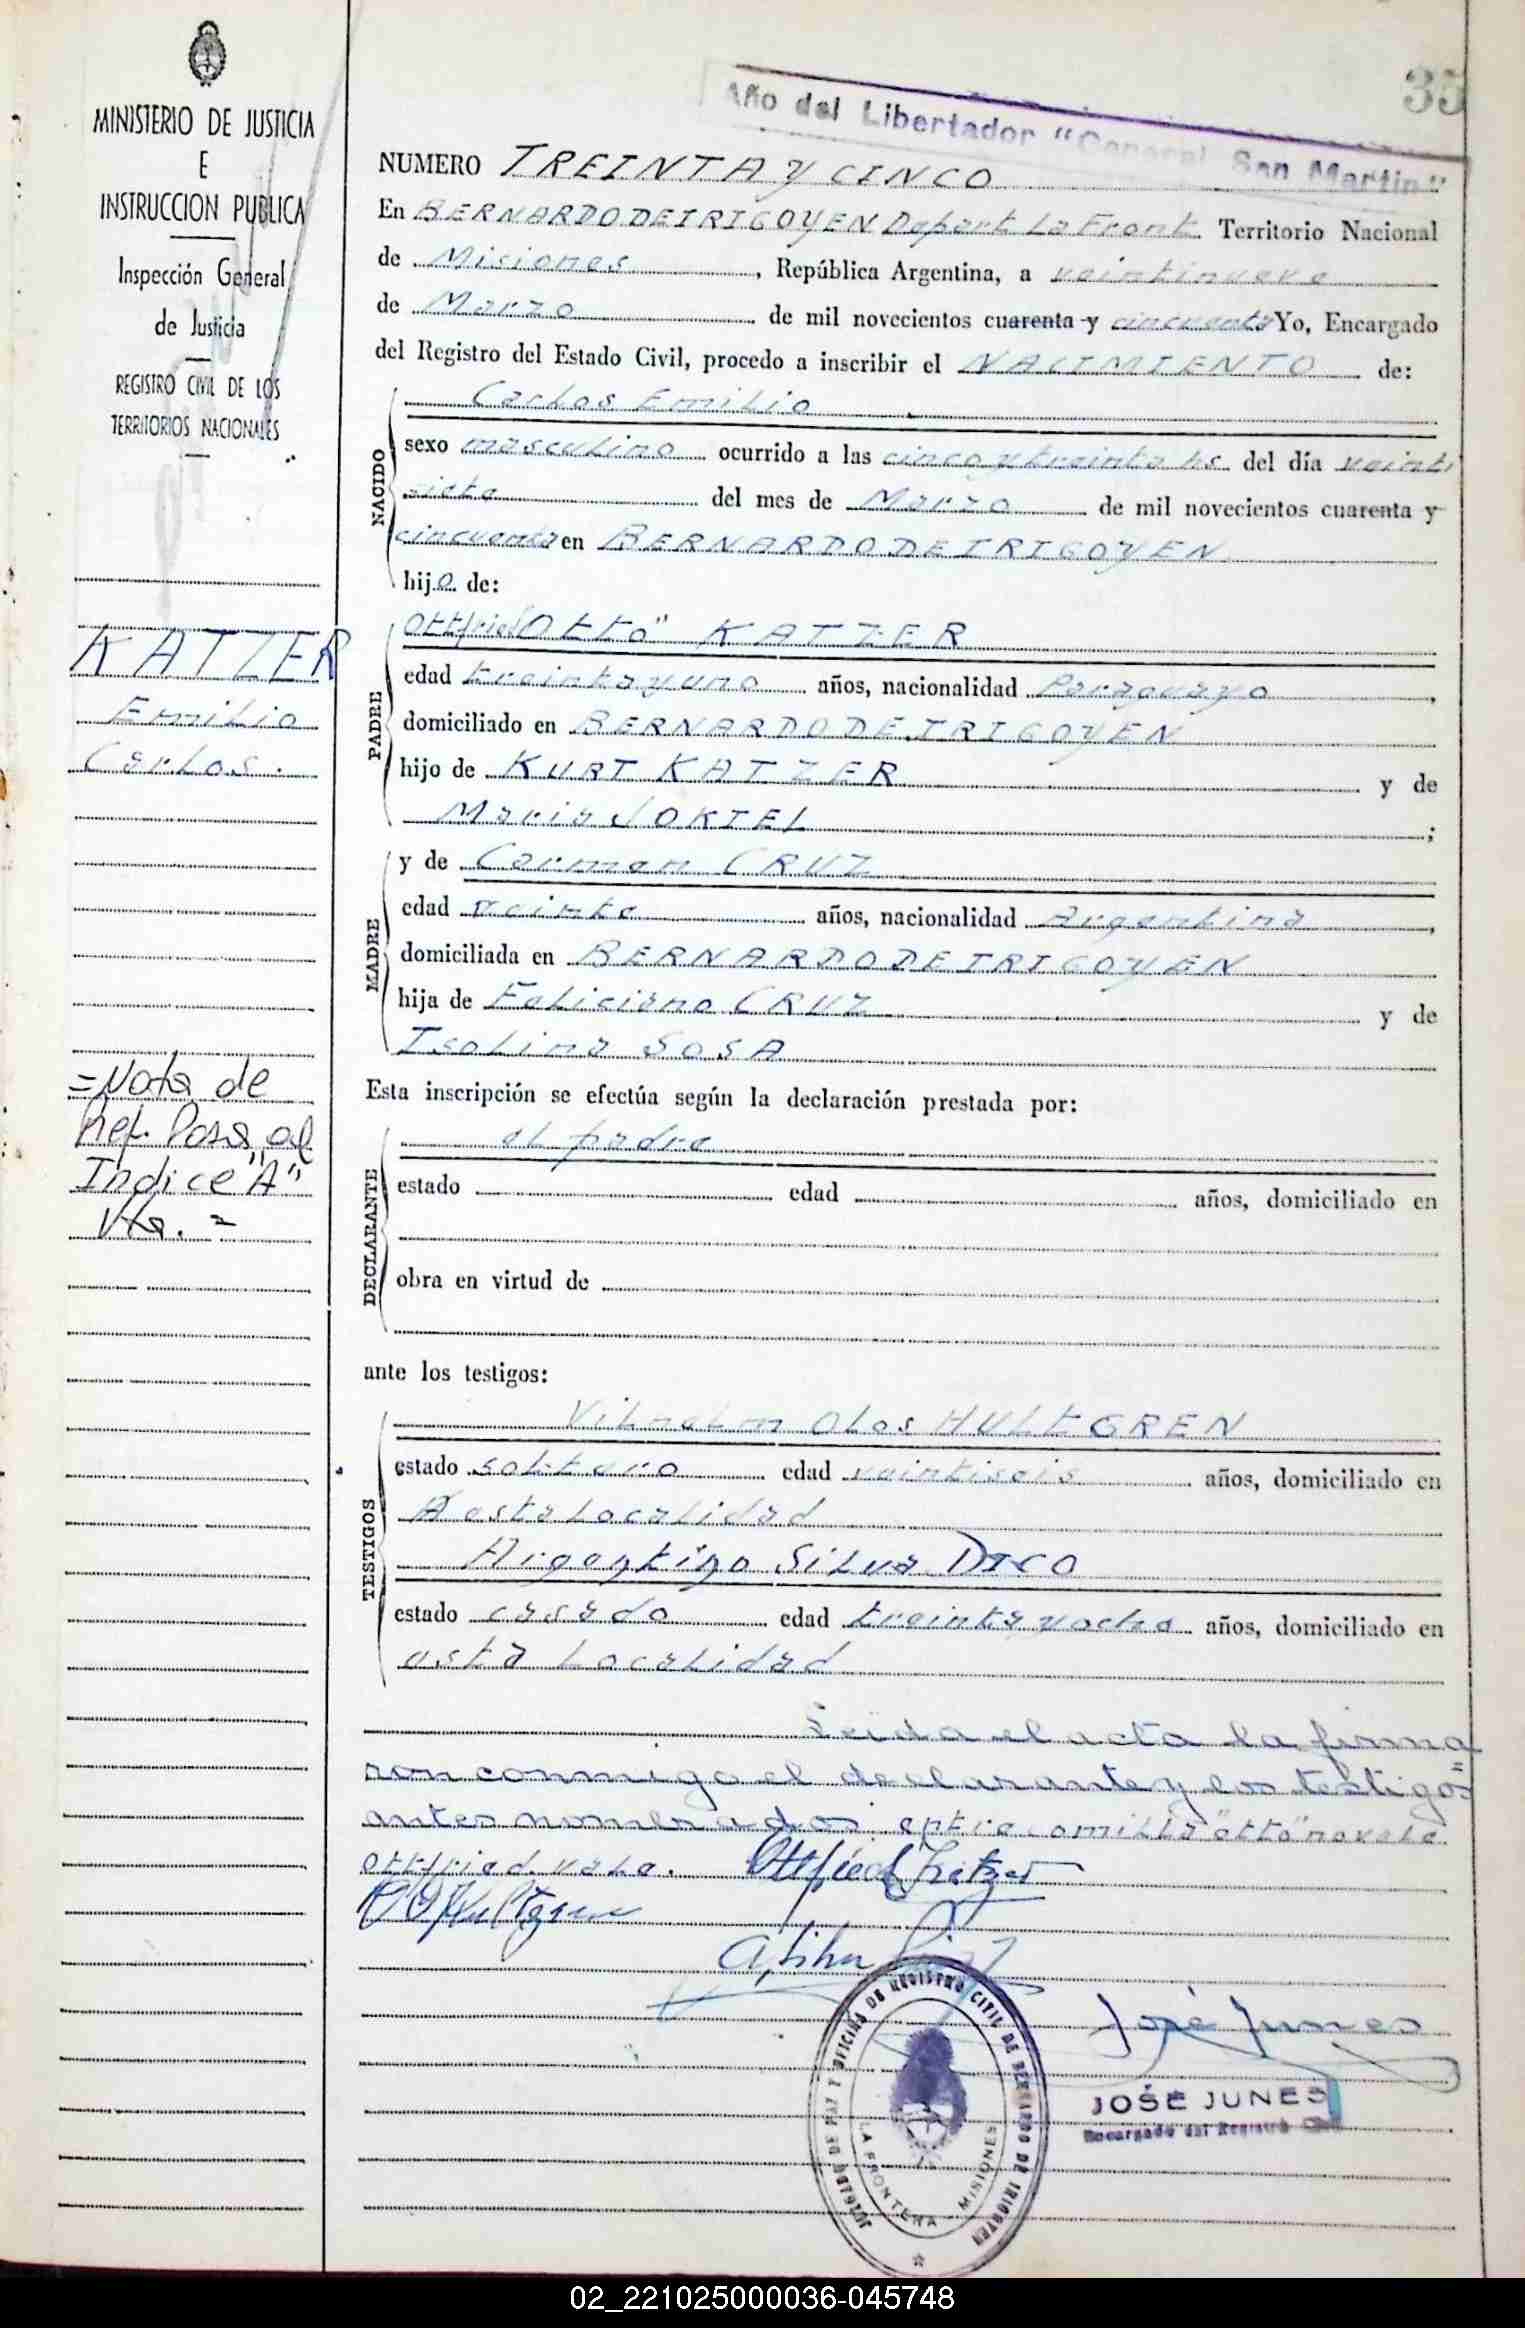 35
Año del Libertador "General San Martin"
MINISTERIO DE JUSTICIA
E
INSTRUCCION PUBLICA
Inspección General
de Justicia
REGISTRO CIVIL DE LOS
TERRITORIOS NACIONALES
KATZER
Emilio
Carlos.
=Nota de
Ref. Pasa al
Indice "A"
Vta. =
NUMERO TREINTA Y CINCO
En BERNARDO DE IRIGOYEN Depart La Front. Territorio Nacional
de Misiones, República Argentina, a veintinueve
de Marzo de mil novecientos cuarenta y cincuenta Yo, Encargado
del Registro del Estado Civil, procedo a inscribir el NACIMIENTO de:
NACIDO
Carlos Emilio
sexo masculino ocurrido a las cinco y treinta hs. del día veinti
siete del mes de Marzo de mil novecientos cuarenta y
cincuenta en BERNARDO DE IRIGOYEN
hijo de:
PADRE
Ottfried Otto" KATZER
edad treinta y uno años, nacionalidad Paraguayo,
domiciliado en BERNARDO DE IRIGOYEN
hijo de KURT KATZER y de
Maria JOKIEL;
MADRE
y de Carmen CRUZ
edad veinte años, nacionalidad Argentina,
domiciliada en BERNARDO DE IRIGOYEN
hija de Feliciano CRUZ y de
Isolina SOSA
Esta inscripción se efectúa según la declaración prestada por:
DECLARANTE
el padre
estado edad años, domiciliado en
obra en virtud de
ante los testigos:
TESTIGOS
Vilhelm Olos HULTGREN
estado soltero edad veintiseis años, domiciliado en
esta Localidad
Argentino Silva DICO
estado casado edad treinta y ocho años, domiciliado en
esta Localidad
Leida el acta la firma
ron conmigo el declarante y los testigos=
antes nombrados. "otto" no vale
ottfried. vale. Ottfried Katzer
A. Silva
José Junes
JOSÉ JUNES
Encargado del Registro Civil
JUZGADO DE PAZ Y OFICINA DE REGISTRO CIVIL DE BERNARDO DE IRIGOYEN
LA FRONTERA MISIONES
02_221025000036-045748